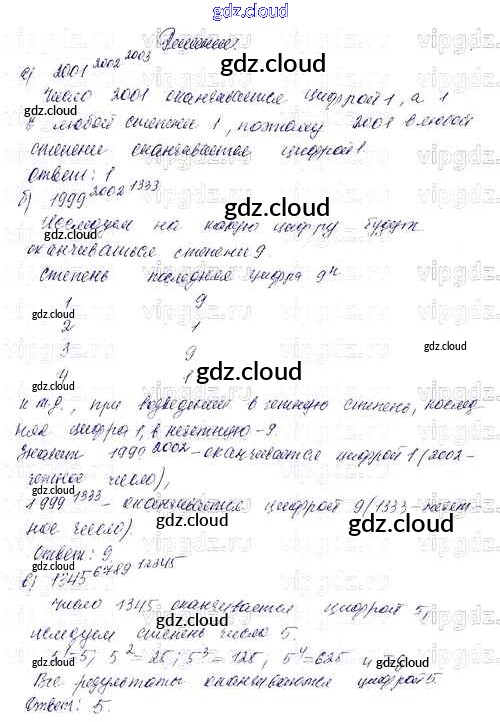 gdz.cloud
Решение.
а) 2001^2002^2003
Число 2001 оканчивается цифрой 1, а 1
в любой степени 1, поэтому 2001 в любой
степени оканчивается цифрой 1.
Ответ: 1
б) 1999^2002^1333
Исследуем на какую цифру будут
оканчиваться степени 9.
степень последняя цифра 9ⁿ
1 9
2 1
3 9
4 1
и т.д., при возведении в четную степень, послед-
няя цифра 1, в нечетную – 9.
Значит 1999^2002 – оканчивается цифрой 1 (2002 –
четное число),
1999^1333 – оканчивается цифрой 9 (1333 – нечет-
ное число).
Ответ: 9.
в) 1345^6789^12345
Число 1345 оканчивается цифрой 5,
исследуем степень числа 5.
5¹=5; 5²=25; 5³=125; 5⁴=625 и т.д.
Все результаты оканчиваются цифрой 5.
Ответ: 5.